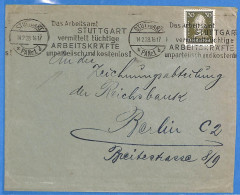 STUTTGART
PAKETA
Das Arbeitsamt
STUTTGART
vermittelt tüchtige
ARBEITSKRÄFTE
unparteiisch und kostenlos!
Das Arbeitsamt
STUTTGART
vermittelt tüchtige
ARBEITSKRÄFTE
unparteiisch und kostenlos!
An die
Zeichnungsabteilung
der Reichsbank
Berlin C2
Breitestrasse 8/9